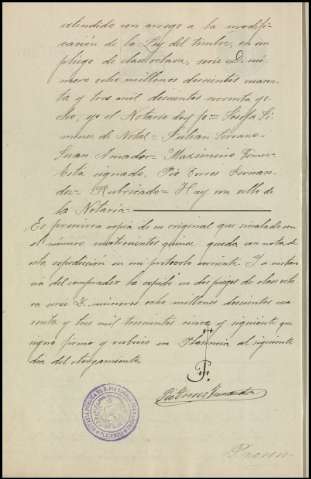 extendido con arreglo a la modifi-
cación de la Ley del timbre, en un
pliego de clase octava, serie D. nú-
mero ocho millones doscientos noven-
ta y tres mil doscientos noventa y o-
cho, yo el Notario doy fe = Josefa Gi-
menez de Notal = Julian Serrano =
Juan Amador = Maximino
= signado = Pio Torres Fernan-
dez = Rubricado = Hay un sello de
la Notaria
Es primera copia de su original que señalado con
el número cuatrocientos quince, queda con nota de
esta expedición en mi protocolo corriente. Y a instan-
cia del comprador la expido en dos pliegos de clase octa-
va serie D. números ocho millones doscientos no-
venta y tres mil trescientos y siguiente que
signo firmo y rubrico en Plasencia al siguiente
dia del otorgamiento.
Pio Torres Fernandez